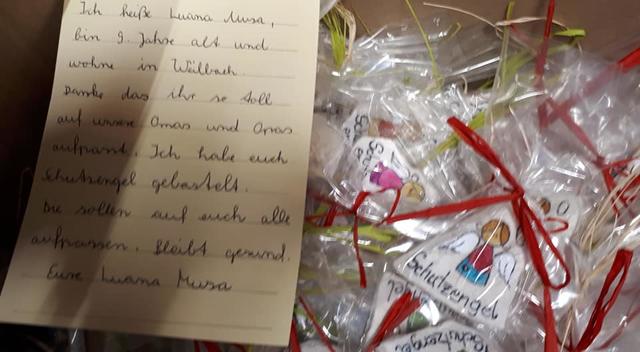 Ich heiße Luana Musa,
bin 9. Jahre alt und
wohne in Wülbach.
Danke das ihr so toll
auf unsere Omas und Opas
aufpasst. Ich habe euch
Schutzengel gebastelt.
Die sollen auf euch alle
aufpassen. Bleibt gesund.
Eure Luana Musa
Schutzengel
Schutzengel